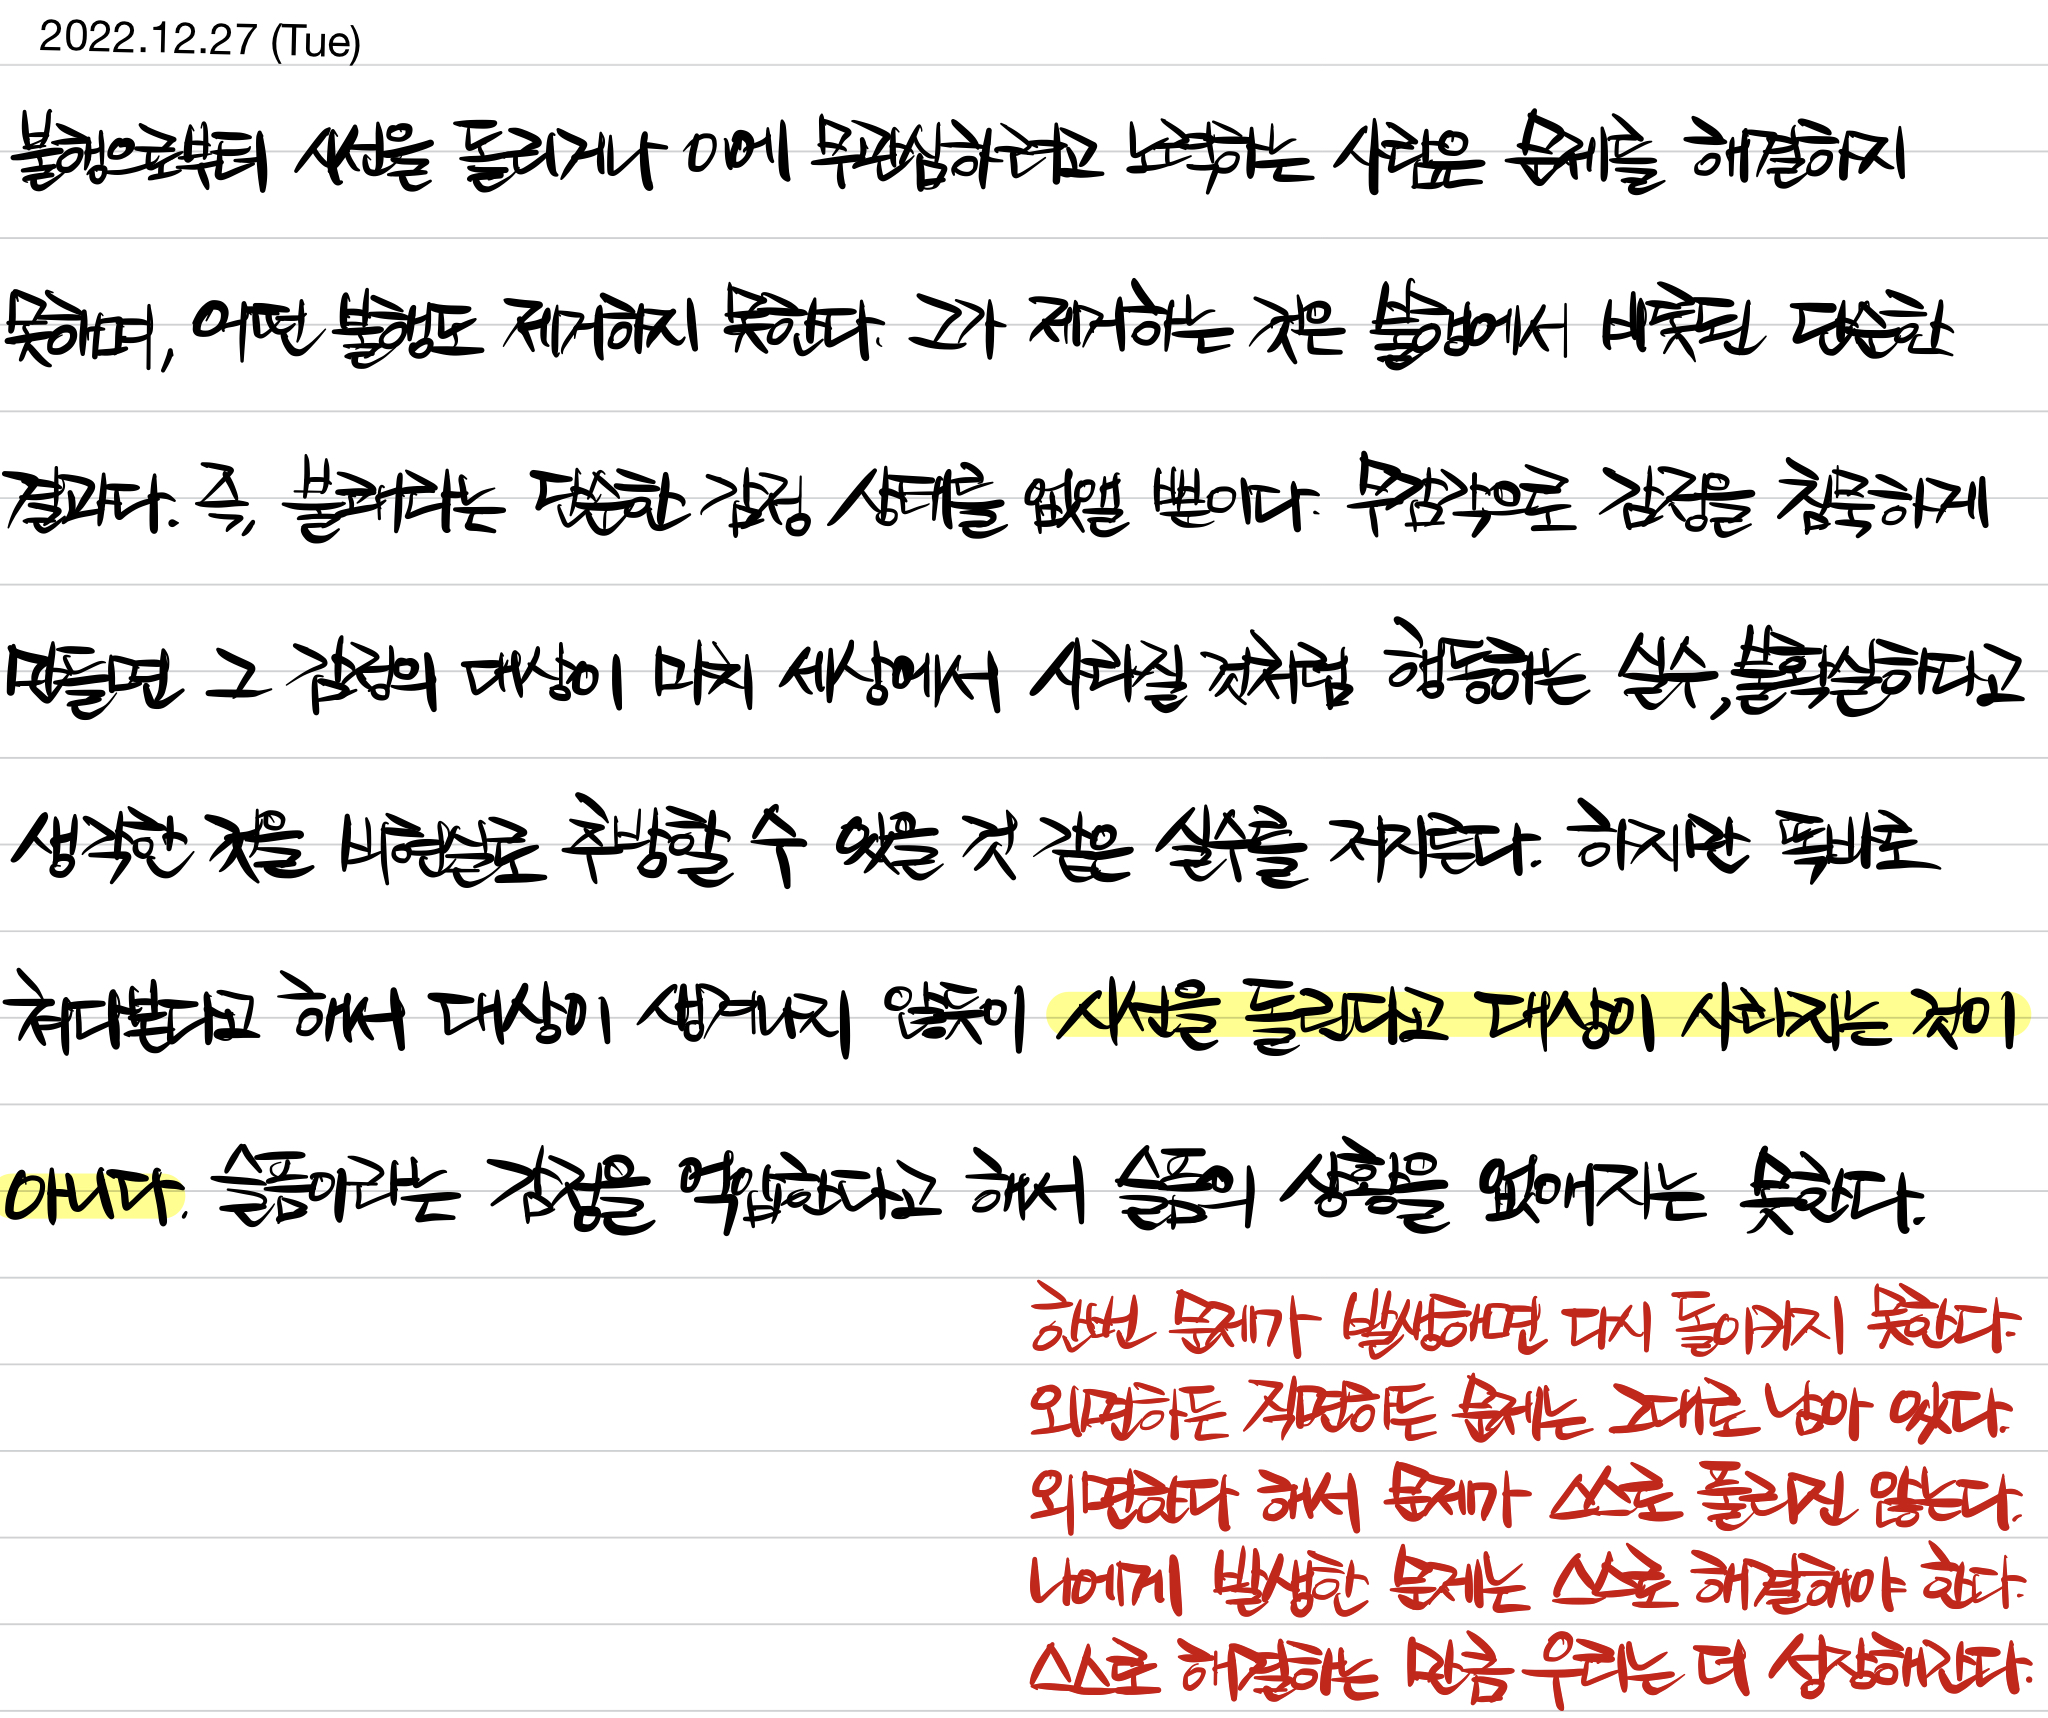 2022.12.27 (Tue)
불행으로부터 시선을 돌리거나 이에 무관심하려고 노력하는 사람은 문제를 해결하지
못하며, 어떤 불행도 제거하지 못한다. 그가 제거하는 것은 불행에서 비롯된 단순한
결과다. 즉, 불쾌라는 단순한 감정 상태를 없앨 뿐이다. 무감각으로 감정을 침묵하게
만들면 그 감정의 대상이 마치 세상에서 사라질 것처럼 행동하는 실수, 불확실하다고
생각한 것을 비현실로 추방할 수 있을 것 같은 실수를 저지른다. 하지만 똑바로
쳐다본다고 해서 대상이 생겨나지 않듯이 시선을 돌린다고 대상이 사라지는 것이
아니다. 슬픔이라는 감정을 억압한다고 해서 슬픔의 상황을 없어지는 못한다.
한번 문제가 발생하면 다시 돌아가지 못한다.
외면하든 직면하든 문제는 그대로 남아 있다.
외면한다 해서 문제가 스스로 풀리진 않는다.
나에게 발생한 문제는 스스로 해결해야 한다.
스스로 해결하는 만큼 우리는 더 성장해간다.